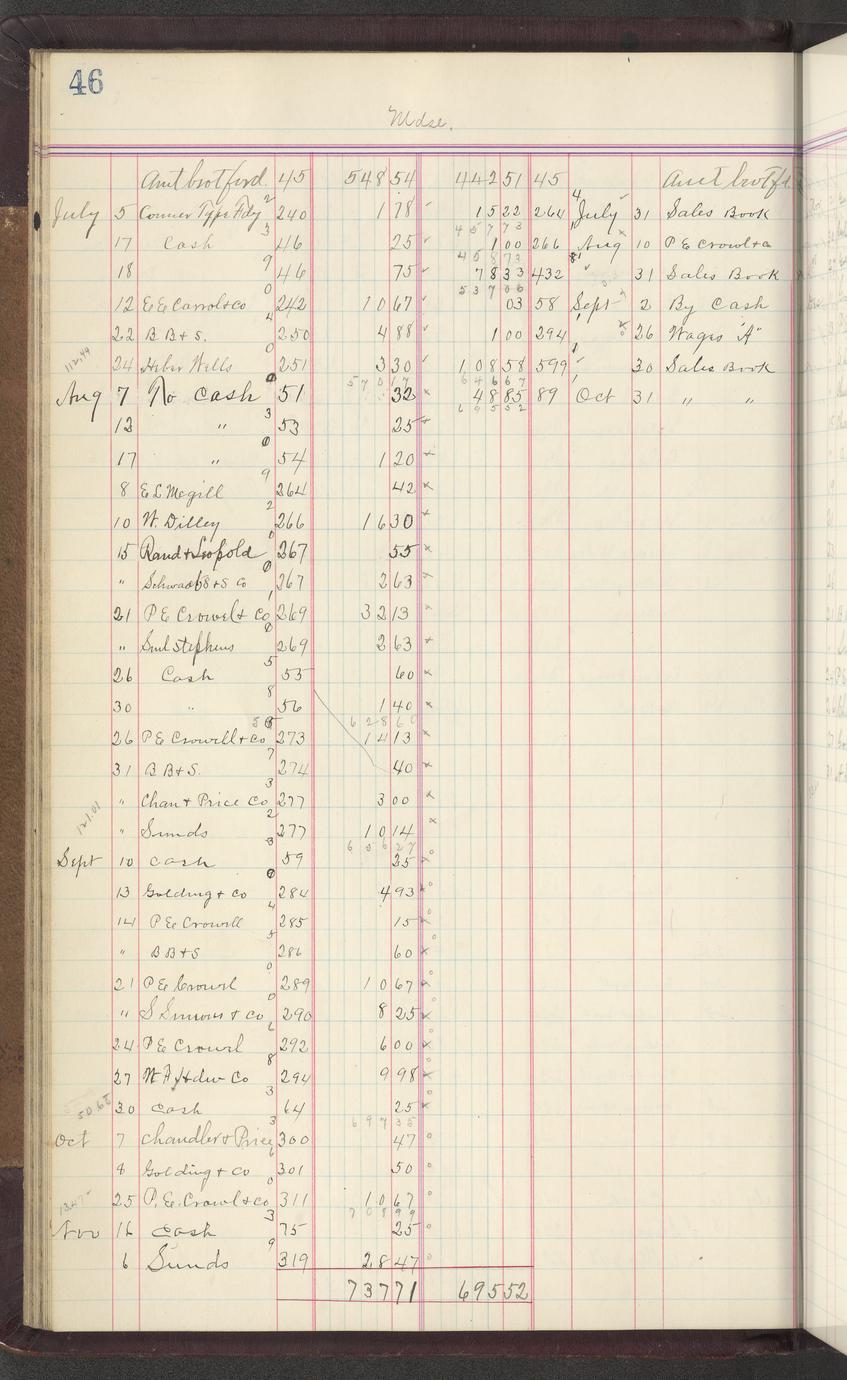 46
Mdse.
Amt brot ford. 45 548 54 442 51 45 Amt brot fd
July 5 Conner Type Fdy 240 1 78 15 22 264 July 31 Sales Book
45773
17 Cash 46 25 1 00 266 Aug 10 P E Crowl & Co
45873
18 46 75 78 33 432 " 31 Sales Book
53706
12 E E Carrol & Co 242 10 67 03 58 Sept 2 By Cash
22 B B & S. 250 4 88 1 00 294 26 Wages "A"
112.44
24 Heber Wells 251 3 30 108 58 599 30 Sales Book
57017 64667
Aug 7 To Cash 51 32 48 85 89 Oct 31 " "
69552
13 " 53 25
17 " 54 1 20
8 E L Megill 264 42
10 W. Dilley 266 16 30
15 Rand & Leopold 267 55
" 267 2 63
21 P E Crowel & Co 269 32 13
" Sml Stephens 269 2 63
26 Cash 55 60
30 " 56 1 40
62860
26 P E Crowell & Co 273 14 13
31 B B & S. 274 40
" Chan & Price Co 277 3 00
121.01
" Sunds 277 10 14
65627
Sept 10 Cash 59 25
13 Golding & Co 284 4 93
14 P E Crowell 285 15
" B B & S 286 60
21 P E Crowel 289 10 67
" S Simons & Co 290 8 25
24 P E Crowl 292 6 00
27 Hdw Co 294 9 98
50.68
30 Cash 64 25
69735
Oct 7 Chandler & Price 300 47
8 Golding & Co 301 50
25 P. E. Crowl & Co 311 10 67
70899
Nov 16 Cash 75 25
6 Sunds 319 28 47
737 71 695 52